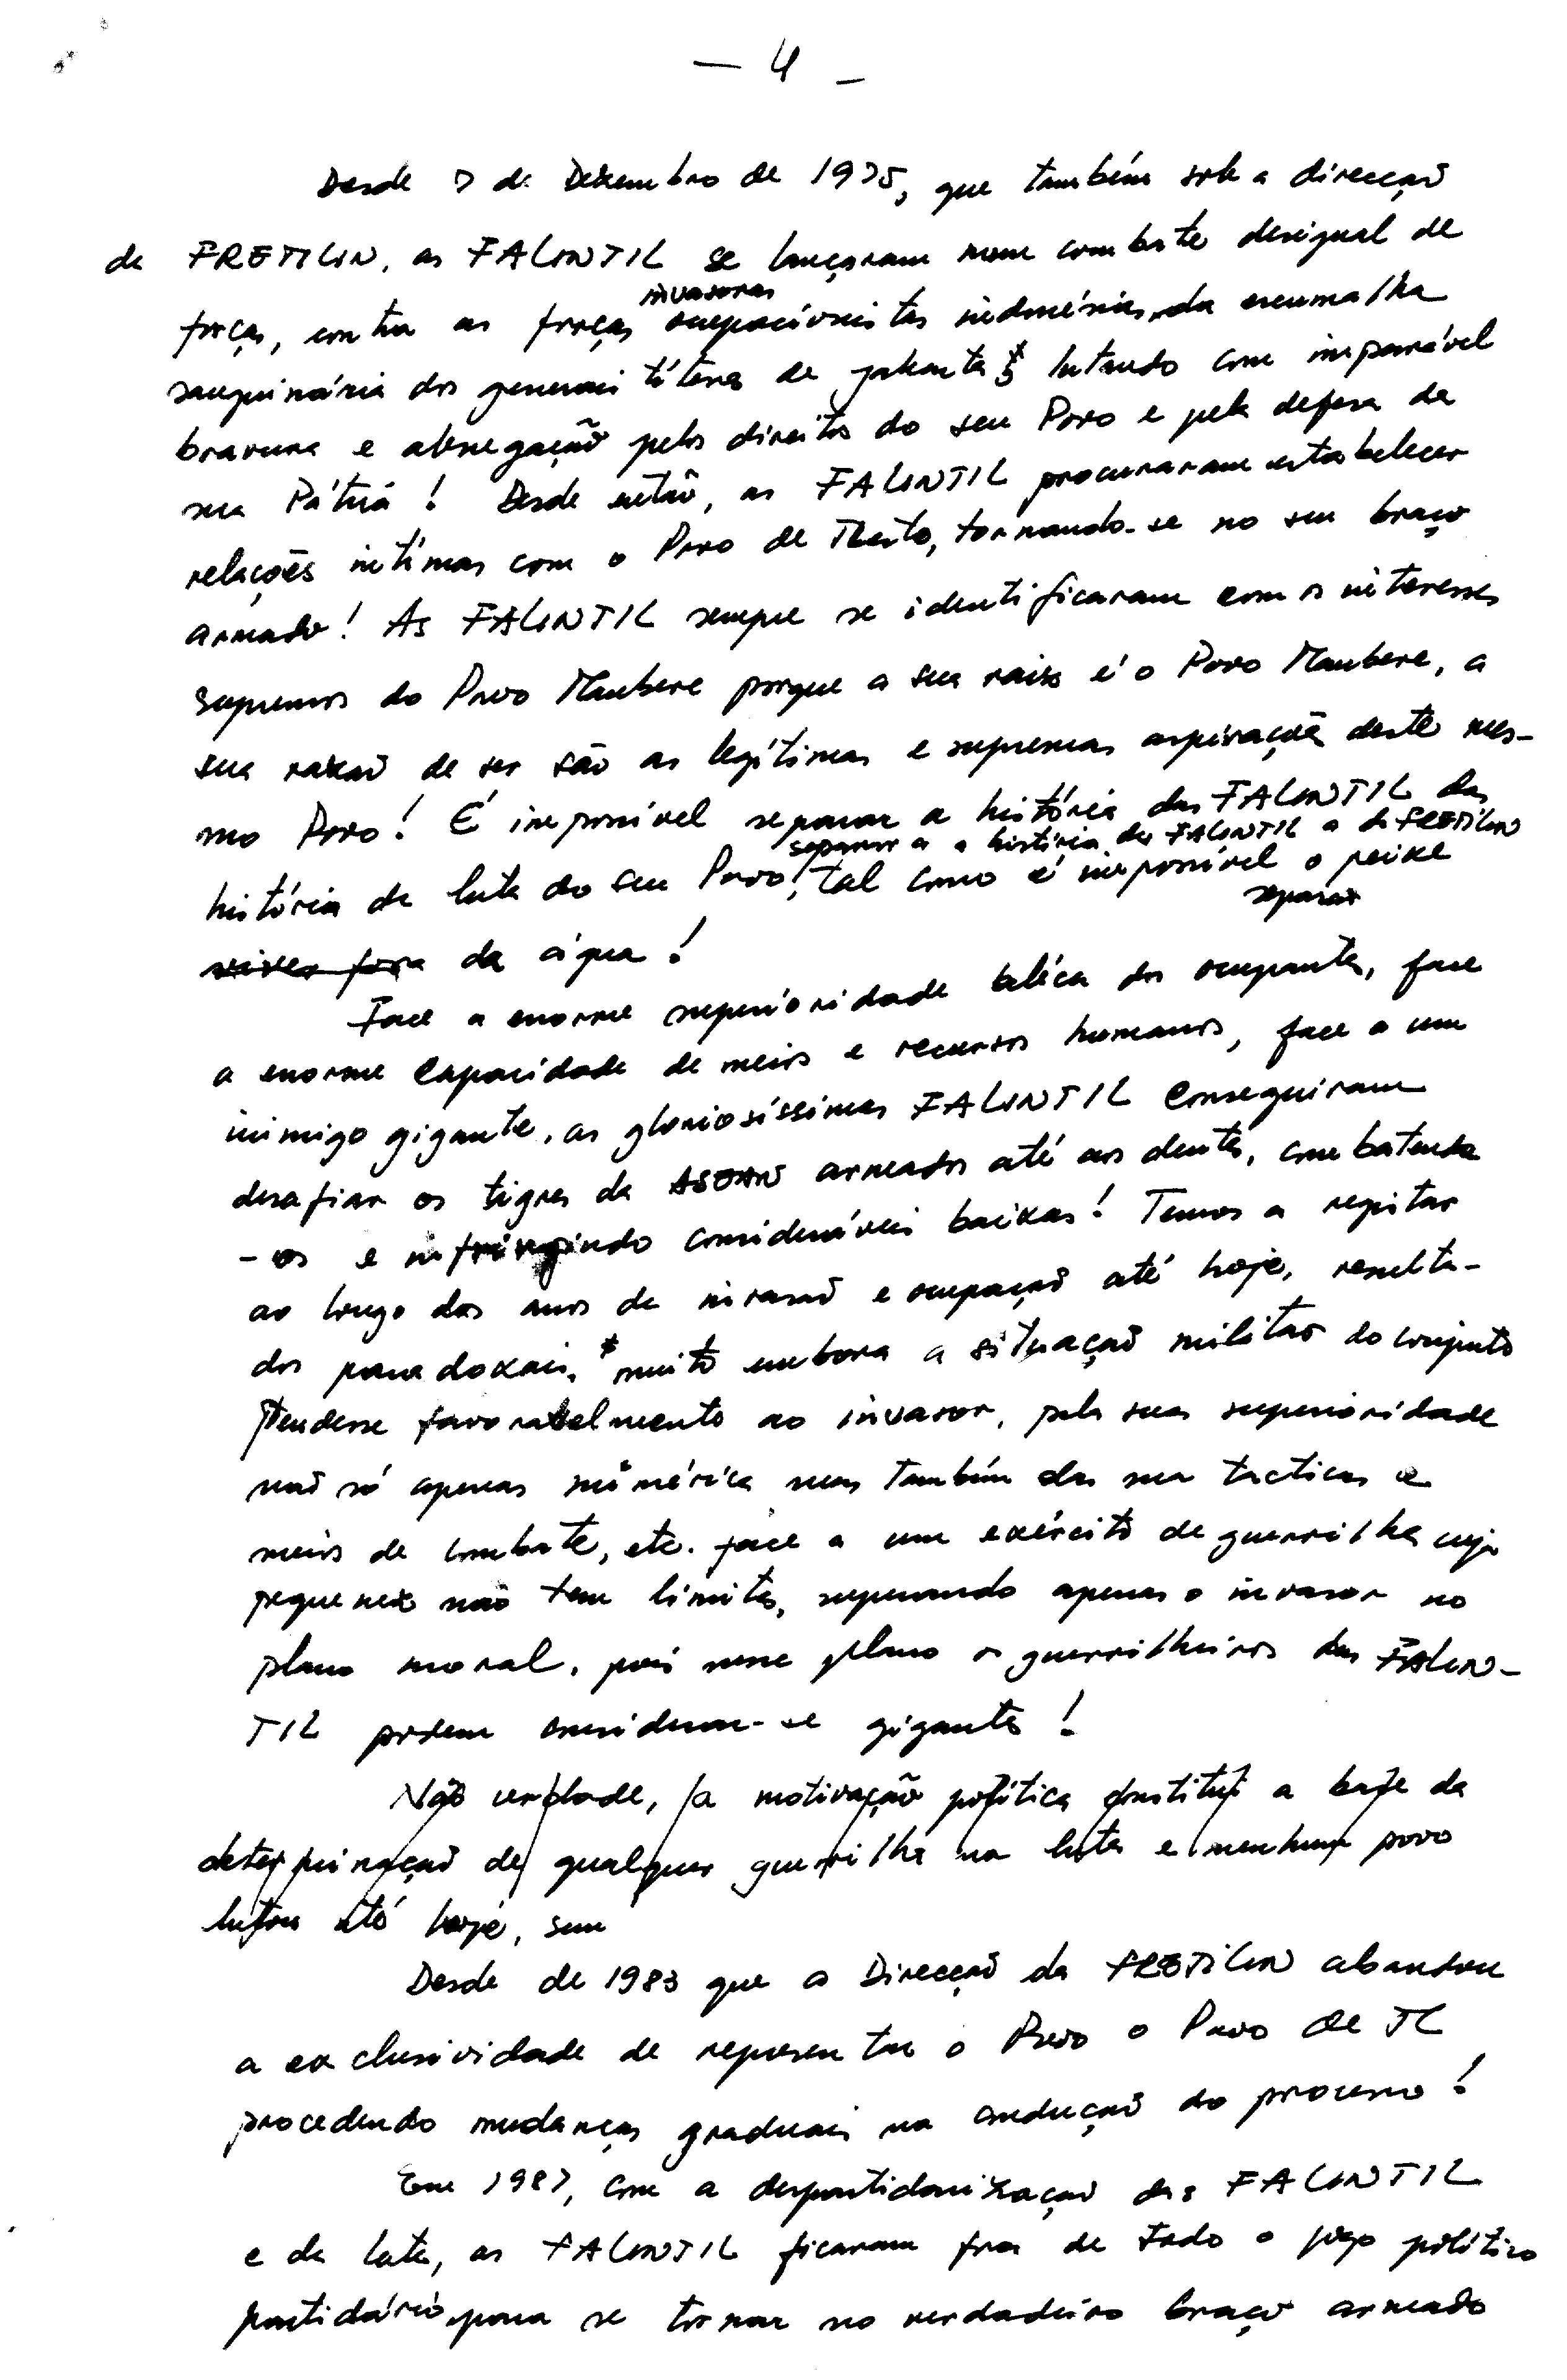 — 4 —
Desde 7 de Dezembro de 1975, que também sob a direcçaõ
da FRETILIN, as FALINTIL se lançaram num combate desigual de
invasoras
forças, contra as forças ocupacionistas indonésias, da escumalha
sanguinária dos generais títeres de Jakarta lutando com imparável
bravura e abnegação pelos direitos do seu Povo e pela defesa da
sua Pátria! Desde então, as FALINTIL procuraram estabelecer
relações intimas com o Povo de T. Leste, tornando-se no seu braço
armado! As FALINTIL sempre se identificaram com os interesses
supremos do Povo Maubere porque a sua raiz é o Povo Maubere, a
sua razaõ de ser são as legítimas e supremas aspirações deste mes-
mo Povo! É impossível separar a história das FALINTIL da
separar a a história das FALINTIL a da FRETILIN
história da luta do seu Povo, tal como é impossível o peixe
separar
viver fora da água!
Face a enorme superioridade bélica dos ocupantes, face
a enorme capacidade de meios e recursos humanos, face a um
inimigo gigante, as gloriosíssimas FALINTIL conseguiram
desafiar os tigres da ASEAN armados até aos dentes, combatendo
-os e infringindo consideráveis baixas! Temos a registar
ao longo dos anos de invasaõ e ocupaçaõ até hoje, resulta-
dos paradoxais, muito embora a situaçaõ militar do conjunto
pendesse favoravelmente ao invasor, pela sua superioridade
naõ só apenas numérica mas também das sua tacticas e
meios de combate, etc. face a um exército de guerrilha cuja
pequenez não tem limites, superando apenas o invasor no
plano moral, pois nesse plano os guerrilheiros das FALIN-
TIL podem considerar-se gigantes!
Não verdade, a motivação política constitui a base da
determinaçaõ de qualquer guerrilha na luta e nenhum povo
lutou até hoje, sem
Desde de 1983 que a Direcçaõ da FRETILIN abandou
a exclusividade de representar o Povo o Povo de TL
procedendo mudanças graduais na conduçaõ do processo!
Em 1987, com a despartidarizaçaõ das FALINTIL
e da luta, as FALINTIL ficaram fora de todo o jogo político
partidário para se tornar no verdadeiro braço armado